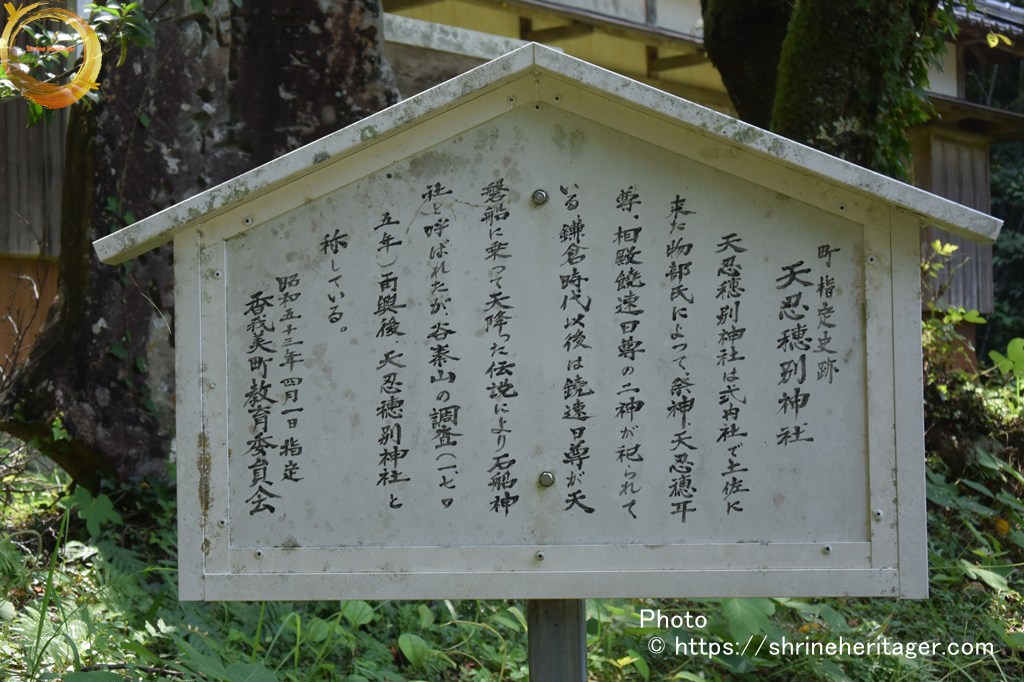 町指定史跡
天忍穂別神社
天忍穂別神社は式内社で土佐に
来た物部氏によって、祭神、天忍穂耳
尊、相殿饒速日尊の二神が祀られて
いる鎌倉時代以後は饒速日尊が天
磐船に乗って天降った伝説により石船神
社と呼ばれたが、谷秦山の調査(一、七〇
五年)再興後、天忍穂別神社と
称している。
昭和五十三年四月一日指定
香我美町教育委員会
Photo
© https://shrineheritager.com
Shrine heritager